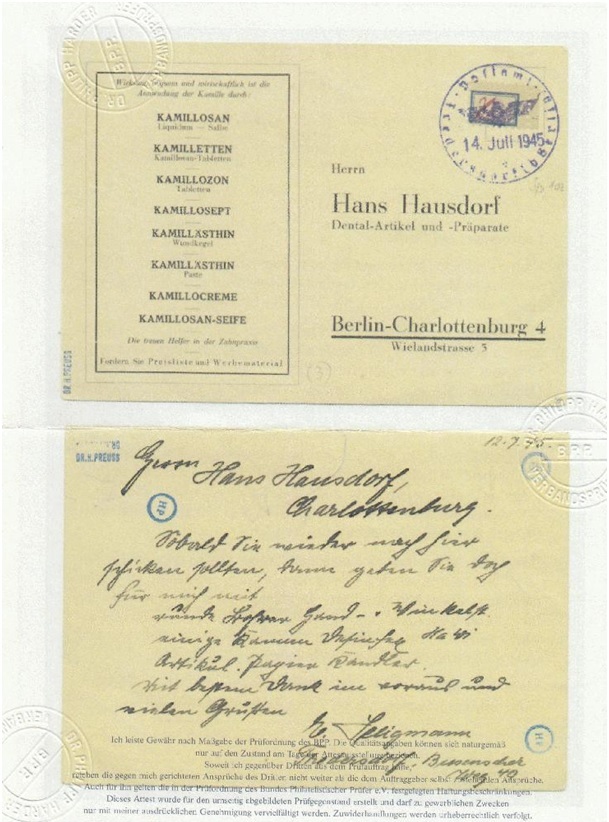 DR. PHILIPP HARDER
VERBANDSPRÜFER
BPP
Wirksam, sparsam und wirtschaftlich ist die
Anwendung der Kamille durch:
KAMILLOSAN
Liquidum — Salbe
KAMILLETTEN
Kamillosan-Tabletten
KAMILLOZON
Tabletten
KAMILLOSEPT
KAMILLÄSTHIN
Wundkegel
KAMILLÄSTHIN
Paste
KAMILLOCREME
KAMILLOSAN-SEIFE
Die treuen Helfer in der Zahnpraxis
Fordern Sie Preisliste und Werbematerial
14. Juli 1945
Herrn
Hans Hausdorf
Dental-Artikel und -Präparate
Berlin-Charlottenburg 4
Wielandstrasse 5
(3)
DR.H.PREUSS
DR.H.PREUSS
12.7.45.
Herrn Hans Hausdorf,
Charlottenburg.
HP
Sobald Sie wieder nach hier
schicken sollten, dann geben Sie doch
für mich mit
runde Bohrer Hand- Winkelst.
einige
Artikul. Papier
Mit bestem Dank im voraus und
vielen Grüßen
E. Seligmann
HP
Ich leiste Gewähr nach Maßgabe der Prüfordnung des BPP. Die Qualitätsangaben können sich naturgemäß
nur auf den Zustand am Tage der Attestausstellung beziehen.
Soweit ich gegenüber Dritten aus dem Prüfauftrag hafte,
reichen die gegen mich gerichteten Ansprüche des Dritten nicht weiter als die dem Auftraggeber selbst zustehenden Ansprüche.
Auch für ihn gelten die in der Prüfordnung des Bundes Philatelistischer Prüfer e.V. festgelegten Haftungsbeschränkungen.
Dieses Attest wurde für den umseitig abgebildeten Prüfgegenstand erstellt und darf zu gewerblichen Zwecken
nur mit meiner ausdrücklichen Genehmigung vervielfältigt werden. Zuwiderhandlungen werden urheberrechtlich verfolgt.